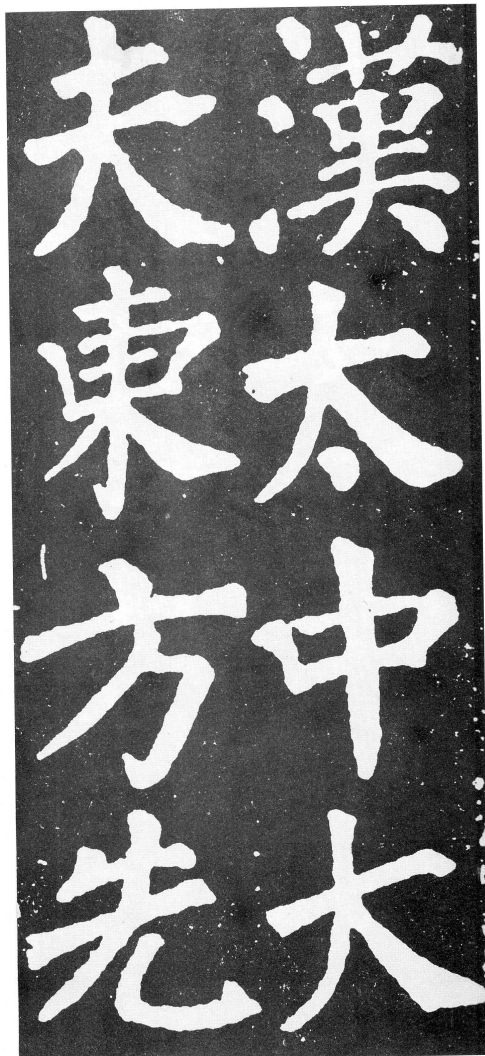 漢太中大
夫東方先